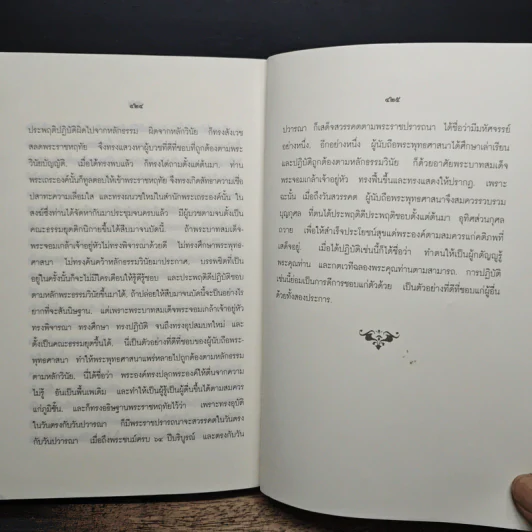 ๔๒๔
ประพฤติปฏิบัติผิดไปจากหลักธรรม ผิดจากหลักวินัย ก็ทรงสังเวช
สลดพระราชหฤทัย จึงทรงแสวงหาผู้บวชที่ดีที่ชอบที่ถูกต้องตามพระ
วินัยบัญญัติ. เมื่อได้ทรงพบแล้ว ก็ทรงไต่ถามตั้งแต่ต้นมา. ท่าน
พระเถระองค์นั้นก็ทูลตอบให้เข้าพระราชหฤทัย จึงทรงเกิดสัทธาความเชื่อ
ปสาทะความเลื่อมใส และทรงผนวชใหม่ในสำนักพระเถระองค์นั้น ใน
สงฆ์ซึ่งท่านได้จัดหากันมาประชุมจนครบแล้ว มีผู้บวชตามจนตั้งเป็น
คณะธรรมยุตติกนิกายขึ้นได้สืบมาจนบัดนี้. ถ้าพระบาทสมเด็จ-
พระจอมเกล้าเจ้าอยู่หัวไม่ทรงพิจารณาด้วยดี ไม่ทรงศึกษาพระพุทธ-
ศาสนา ไม่ทรงค้นคว้าหลักธรรมวินัยมาประกาศ, บรรพชิตที่เป็น
อยู่ในครั้งนั้นก็จะไม่มีใครเตือนให้รู้ดีรู้ชอบ และประพฤติดีปฏิบัติชอบ
ตามหลักพระธรรมวินัยขึ้นมาได้. ถ้าปล่อยให้สืบมาจนบัดนี้จะเป็นอย่างไร
ยากที่จะสันนิษฐาน. แต่เพราะพระบาทสมเด็จพระจอมเกล้าเจ้าอยู่หัว
ทรงพิจารณา ทรงศึกษา ทรงปฏิบัติ จนถึงทรงอุปสมบทใหม่ และ
ตั้งเป็นคณะธรรมยุตขึ้นได้. นี่เป็นตัวอย่างที่ดีที่ชอบของผู้นับถือพระ-
พุทธศาสนา ทำให้พระพุทธศาสนาแพร่หลายไปถูกต้องตามหลักธรรม
ตามหลักวินัย. นี่ได้ชื่อว่า พระองค์ทรงปลุกพระองค์ให้ตื่นจากความ
ไม่รู้ อันเป็นพื้นเพเดิม และทำให้เป็นผู้รู้เป็นผู้ตื่นขึ้นได้ตามสมควร
แก่ภูมิชั้น. และก็ทรงอธิษฐานพระราชหฤทัยไว้ว่า เพราะทรงอุบัติ
ในวันตรงกับวันปวารณา ก็มีพระราชปรารถนาจะสวรรคตในวันตรง
กับวันปวารณา เมื่อถึงพระชนม์ครบ ๖๔ ปีบริบูรณ์ และตรงกับวัน
๔๒๕
ปวารณา ก็เสด็จสวรรคตตามพระราชปรารถนา ได้ชื่อว่ามีมหัศจรรย์
อย่างหนึ่ง. อีกอย่างหนึ่ง ผู้นับถือพระพุทธศาสนาได้ศึกษาเล่าเรียน
และปฏิบัติถูกต้องตามหลักธรรมวินัย ก็ด้วยอาศัยพระบาทสมเด็จ
พระจอมเกล้าเจ้าอยู่หัว ทรงฟื้นขึ้นและทรงแสดงให้ปรากฏ. เพราะ
ฉะนั้น เมื่อถึงวันสวรรคต ผู้นับถือพระพุทธศาสนาจึงสมควรรวบรวม
บุญกุศล ที่ตนได้ประพฤติดีประพฤติชอบตั้งแต่ต้นมา อุทิศส่วนกุศล
ถวาย เพื่อให้สำเร็จประโยชน์สุขแด่พระองค์ตามสมควรแก่คติภพที่
เสด็จอยู่. เมื่อได้ปฏิบัติเช่นนี้ก็ได้ชื่อว่า ทำตนให้เป็นผู้กตัญญูรู้
พระคุณท่าน และกตเวทีฉลองพระคุณท่านตามสามารถ. การปฏิบัติ
เช่นนี้ย่อมเป็นการดีการชอบแก่ตัวด้วย เป็นตัวอย่างที่ดีที่ชอบแก่ผู้อื่น
ด้วยทั้งสองประการ.